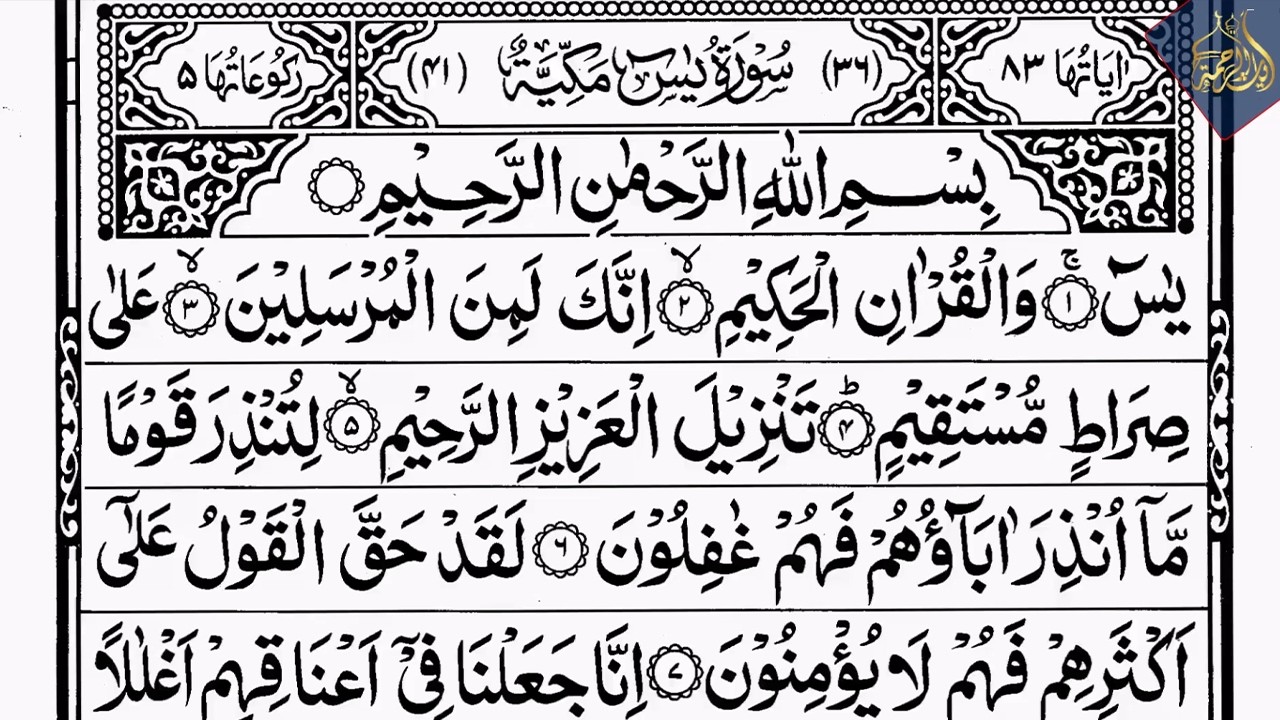 اٰيَاتُهَا ٨٣ (٣٦) سُوْرَةُ يٰسٓ مَكِّيَّةٌ (٤١) رُكُوْعَاتُهَا ٥
بِسْمِ اللّٰهِ الرَّحْمٰنِ الرَّحِيْمِ
يٰسٓ ۚ ﴿١﴾ وَالْقُرْاٰنِ الْحَكِيْمِ ۙ ﴿٢﴾ اِنَّكَ لَمِنَ الْمُرْسَلِيْنَ ۙ ﴿٣﴾ عَلٰى
صِرَاطٍ مُّسْتَقِيْمٍ ؕ ﴿۴﴾ تَنْزِيْلَ الْعَزِيْزِ الرَّحِيْمِ ۙ ﴿۵﴾ لِتُنْذِرَ قَوْمًا
مَّاۤ اُنْذِرَ اٰبَآؤُهُمْ فَهُمْ غٰفِلُوْنَ ﴿۶﴾ لَقَدْ حَقَّ الْقَوْلُ عَلٰۤى
اَكْثَرِهِمْ فَهُمْ لَا يُؤْمِنُوْنَ ﴿٧﴾ اِنَّا جَعَلْنَا فِيْۤ اَعْنَاقِهِمْ اَغْلٰلًا